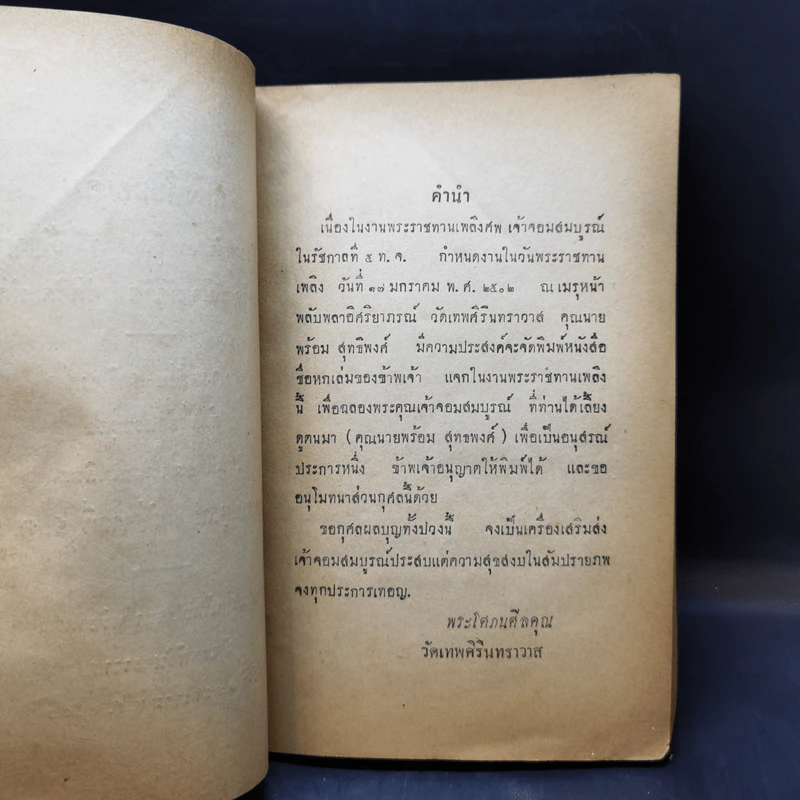 คำนำ
เนื่องในงานพระราชทานเพลิงศพ เจ้าจอมสมบูรณ์
ในรัชกาลที่ ๕ ท. จ. กำหนดงานในวันพระราชทาน
เพลิง วันที่ ๑๗ มกราคม พ. ศ. ๒๕๐๒ ณ เมรุหน้า
พลับพลาอิศริยาภรณ์ วัดเทพศิรินทราวาส คุณนาย
พร้อม สุทธิพงศ์ มีความประสงค์จะจัดพิมพ์หนังสือ
ชื่อหกเล่มของข้าพเจ้า แจกในงานพระราชทานเพลิง
นี้ เพื่อฉลองพระคุณเจ้าจอมสมบูรณ์ ที่ท่านได้เลี้ยง
ดูตนมา ( คุณนายพร้อม สุทธพงศ์ ) เพื่อเป็นอนุสรณ์
ประการหนึ่ง ข้าพเจ้าอนุญาตให้พิมพ์ได้ และขอ
อนุโมทนาส่วนกุศลนี้ด้วย
ขอกุศลผลบุญทั้งปวงนี้ จงเป็นเครื่องเสริมส่ง
เจ้าจอมสมบูรณ์ประสบแต่ความสุขสงบในสัมปรายภพ
จงทุกประการเทอญ.
พระโศภนศีลคุณ
วัดเทพศิรินทราวาส